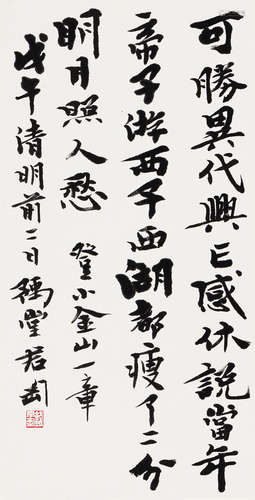 可勝異代興亡感休說當年
帝子游西子西湖都瘦了二分
明月照人愁 登小金山一章
戊午清明前二日 鶴堂君